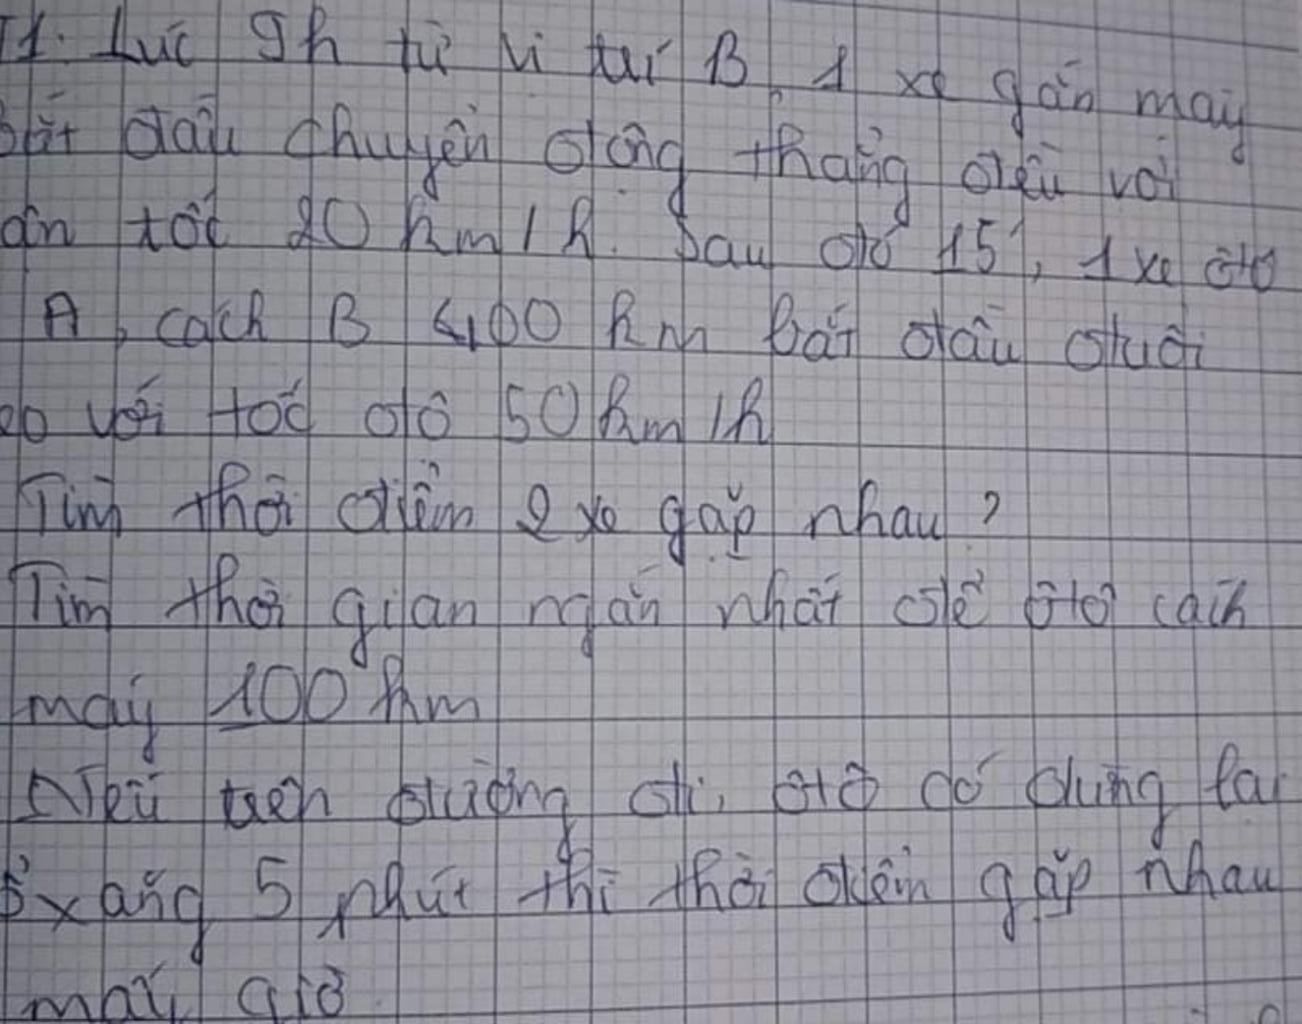 1. Lúc 9h từ vị trí B, 1 xe gắn máy
bắt đầu chuyển động thẳng đều với
vận tốc 20 km/h. Sau đó 15', 1 xe ôtô
A, cách B 400 km bắt đầu đuổi
theo với tốc độ 50 km/h
Tìm thời điểm 2 xe gặp nhau?
Tìm thời gian ngắn nhất để ôtô cách
máy 100 km
Nếu trên đường đi, ôtô có dừng lại
đổ xăng 5 phút thì thời điểm gặp nhau
mấy giờ